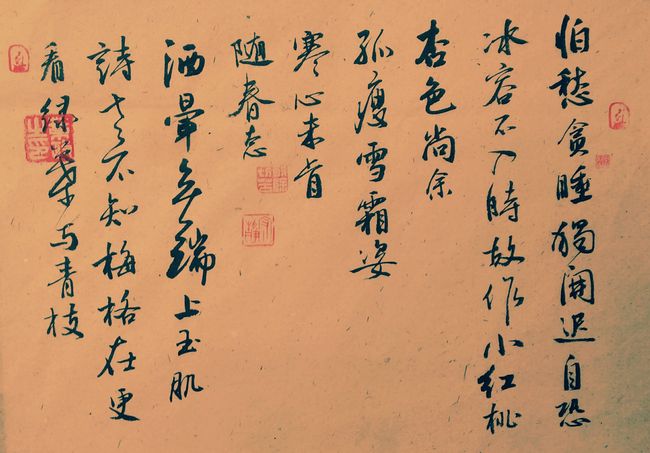 怕愁貪睡獨開迟自恐
冰容不入時故作小红桃
杏色尚余
孤瘦雪霜姿
寒心未肯
随春态
酒暈无端上玉肌
詩老不知梅格在更
看绿葉与青枝